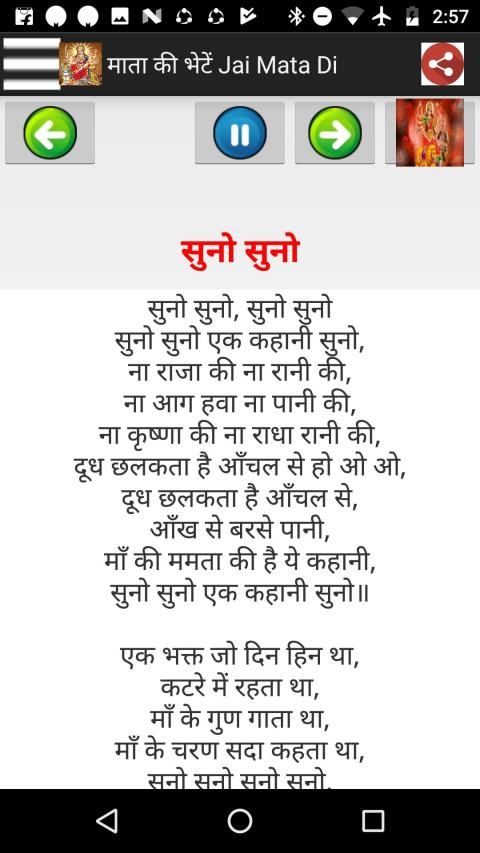 2:57
माता की भेटें Jai Mata Di
सुनो सुनो
सुनो सुनो, सुनो सुनो
सुनो सुनो एक कहानी सुनो,
ना राजा की ना रानी की,
ना आग हवा ना पानी की,
ना कृष्णा की ना राधा रानी की,
दूध छलकता है आँचल से हो ओ ओ,
दूध छलकता है आँचल से,
आँख से बरसे पानी,
माँ की ममता की है ये कहानी,
सुनो सुनो एक कहानी सुनो॥
एक भक्त जो दिन हिन था,
कटरे में रहता था,
माँ के गुण गाता था,
माँ के चरण सदा कहता था,
सुनो सुनो सुनो सुनो,